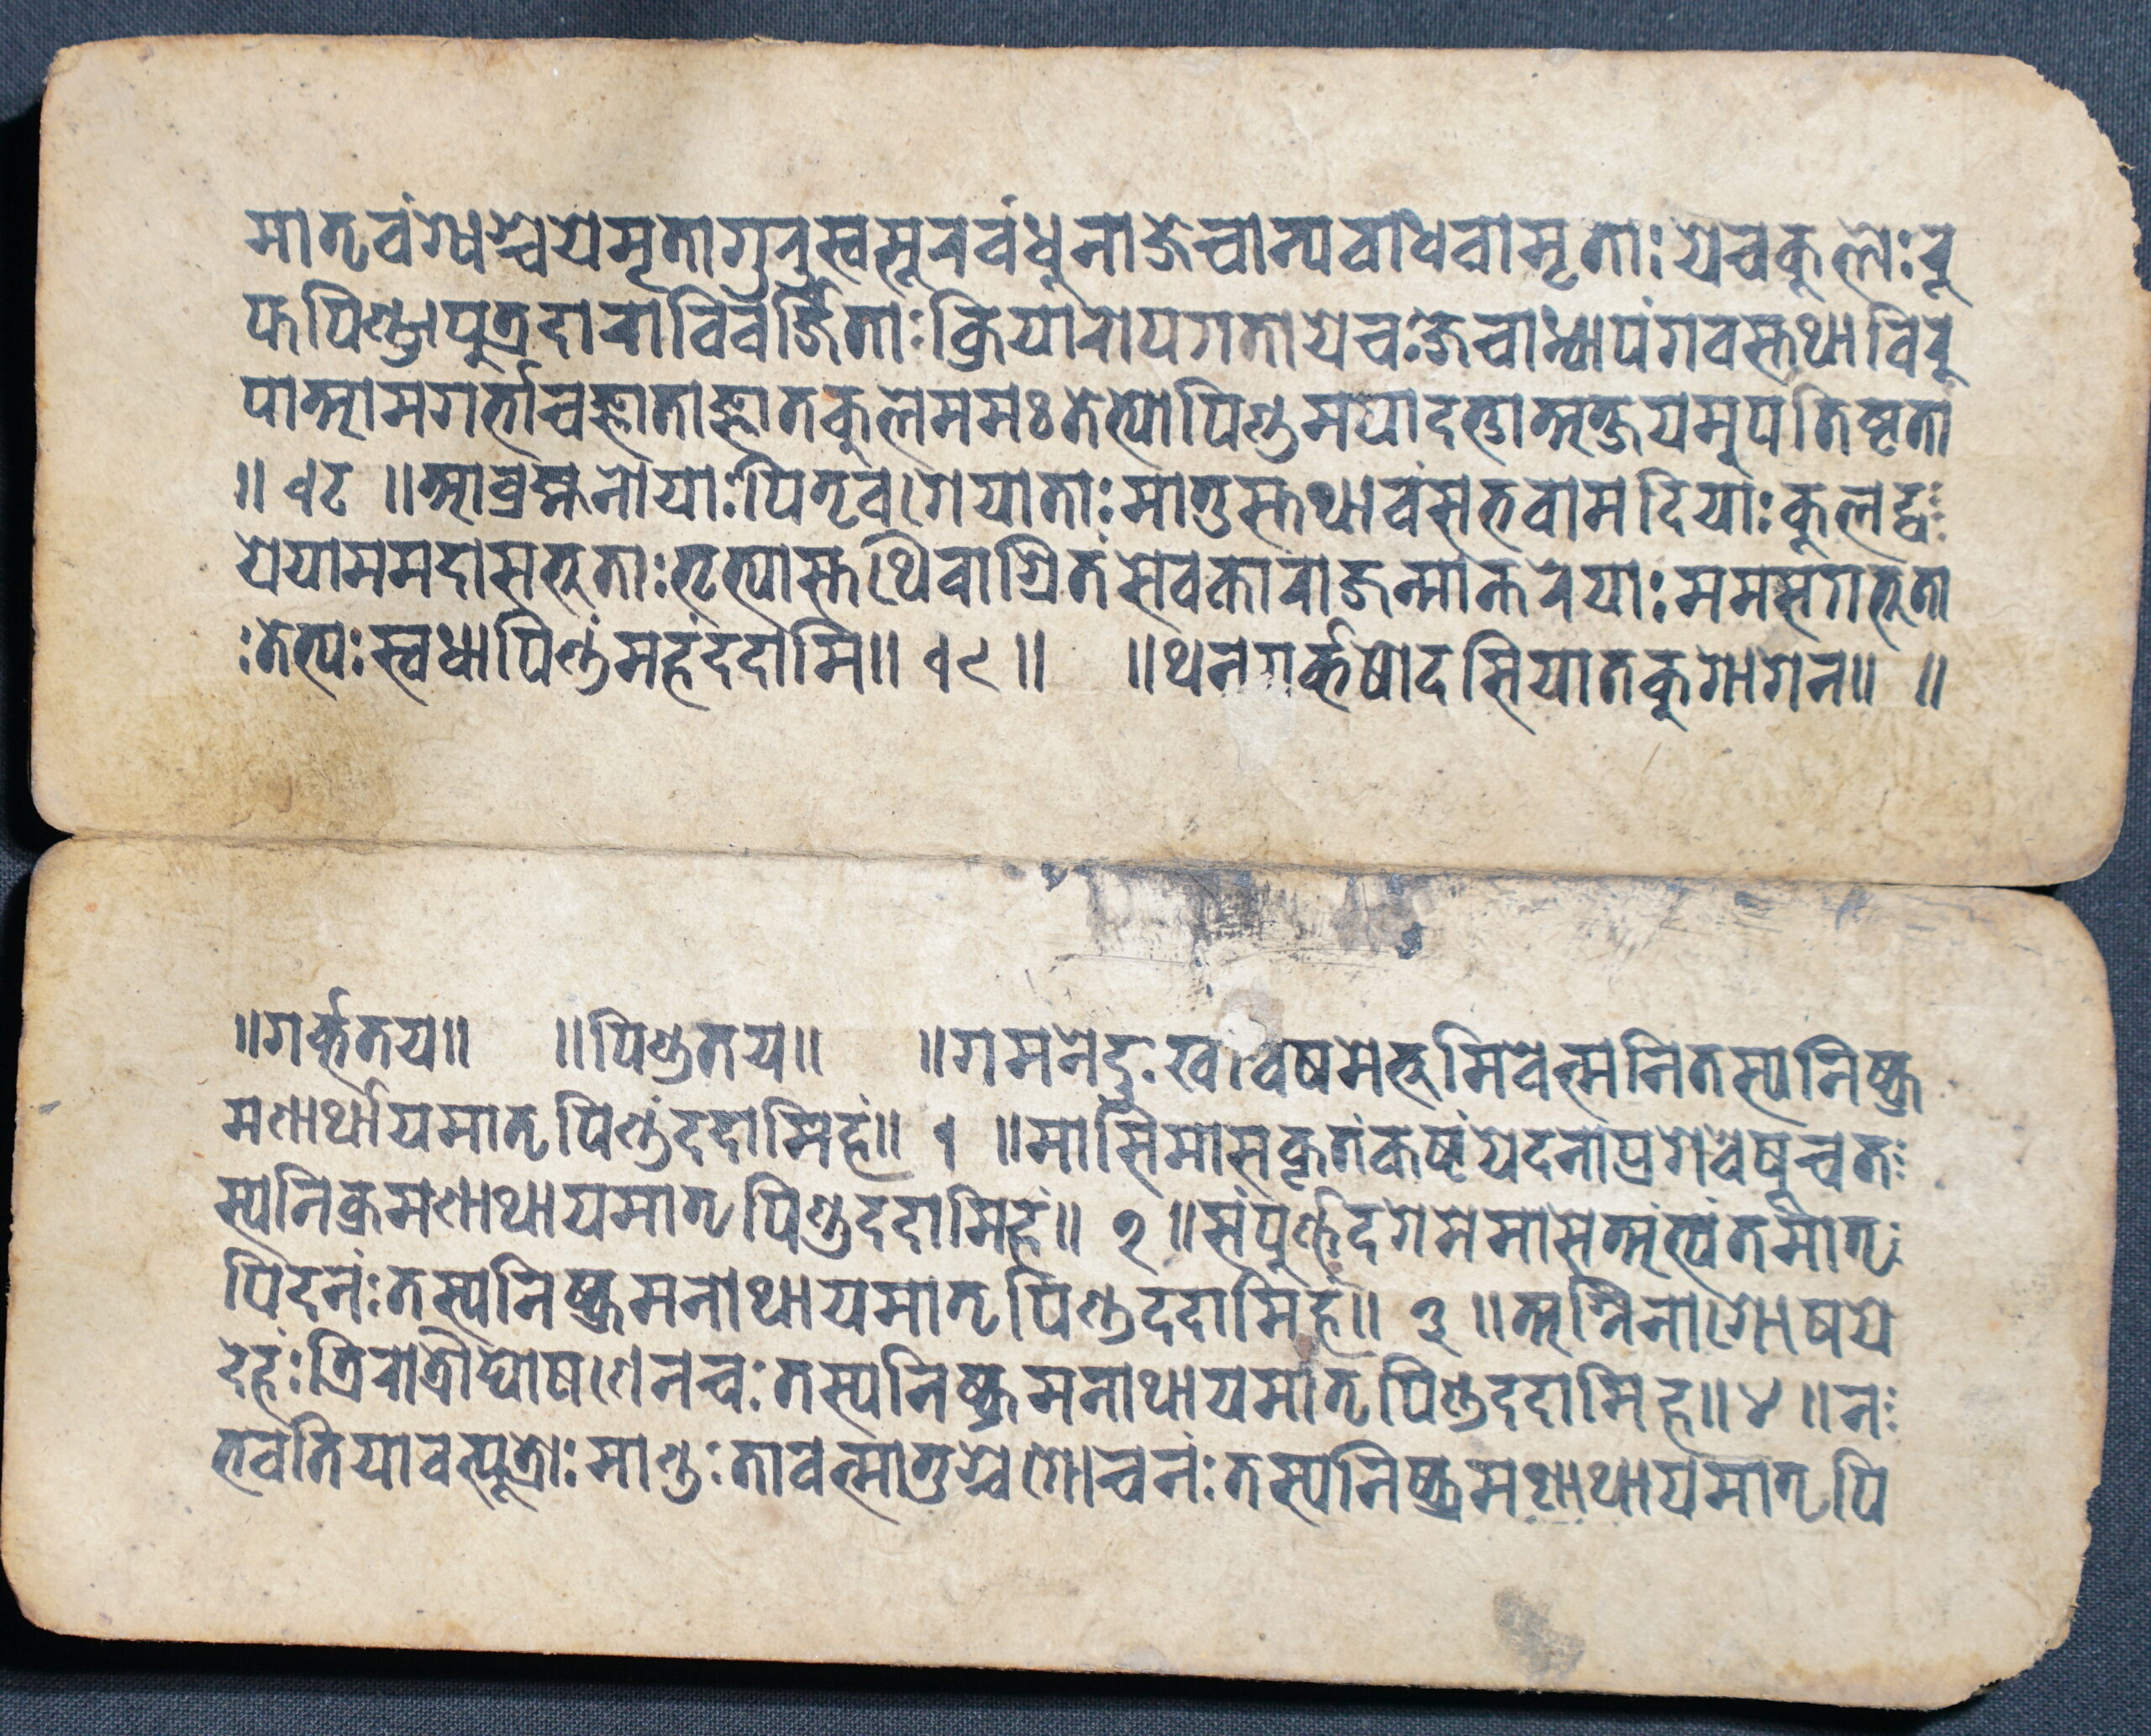 मातृवंग्याश्चेयेमृतागुरुस्वसूरवंधुनाजेचान्यवांधवामृताः येचकुल्लेःरू
फपिण्डापुत्रदाराविवर्जिताःक्रियारोपगतायेचःजेचान्ध्यापंगवस्तथाविरू
पाआमगर्त्ताचज्ञाताज्ञातकुलेममःतेभ्योपिण्डमयादत्ताअक्षयमुपतिष्टतां
॥ १८ ॥आब्रह्मनोयाःपितृवंगेयाताःमातुस्तथावंसभवामदियाःकुलद्वः
येयाममदासभुताःभृत्यास्तथैवाग्रितंसेवकाराजन्मान्तरेयाःममसंगभुता
ःतेभ्यःस्वधापिण्डंमहंददामि॥ १९ ॥ ॥थनगर्भषोदसियातकुगागेन॥ ॥
॥गर्भतय॥ ॥पिण्डतय॥ ॥गमनेदुःखविषमेभुमिवेत्मनितस्यनिष्क्र
मणार्थायमातृपिण्डंददामिहं॥ १ ॥मासिमासकृतंकष्टंयेदनांप्रगेवेषूचतः
स्यनिक्रमणाथायमातृपिण्डददामिहं॥ २ ॥संपुर्णदगेमेमासेअंत्यंतमातृः
पिदनंःतस्यनिष्क्रमनाथायमातृपिण्डददामिहं॥ ३ ॥अग्निनागोषये
देहंःत्रिरात्रौद्योषणेनचःतस्यनिष्क्रमनाथायमातृपिण्डददामिह॥४ ॥नः
भवतियावत्पूत्रोःमाण्डःतावत्मातुश्चेगोचनंःतस्यनिष्क्रमणाथायमातृपि